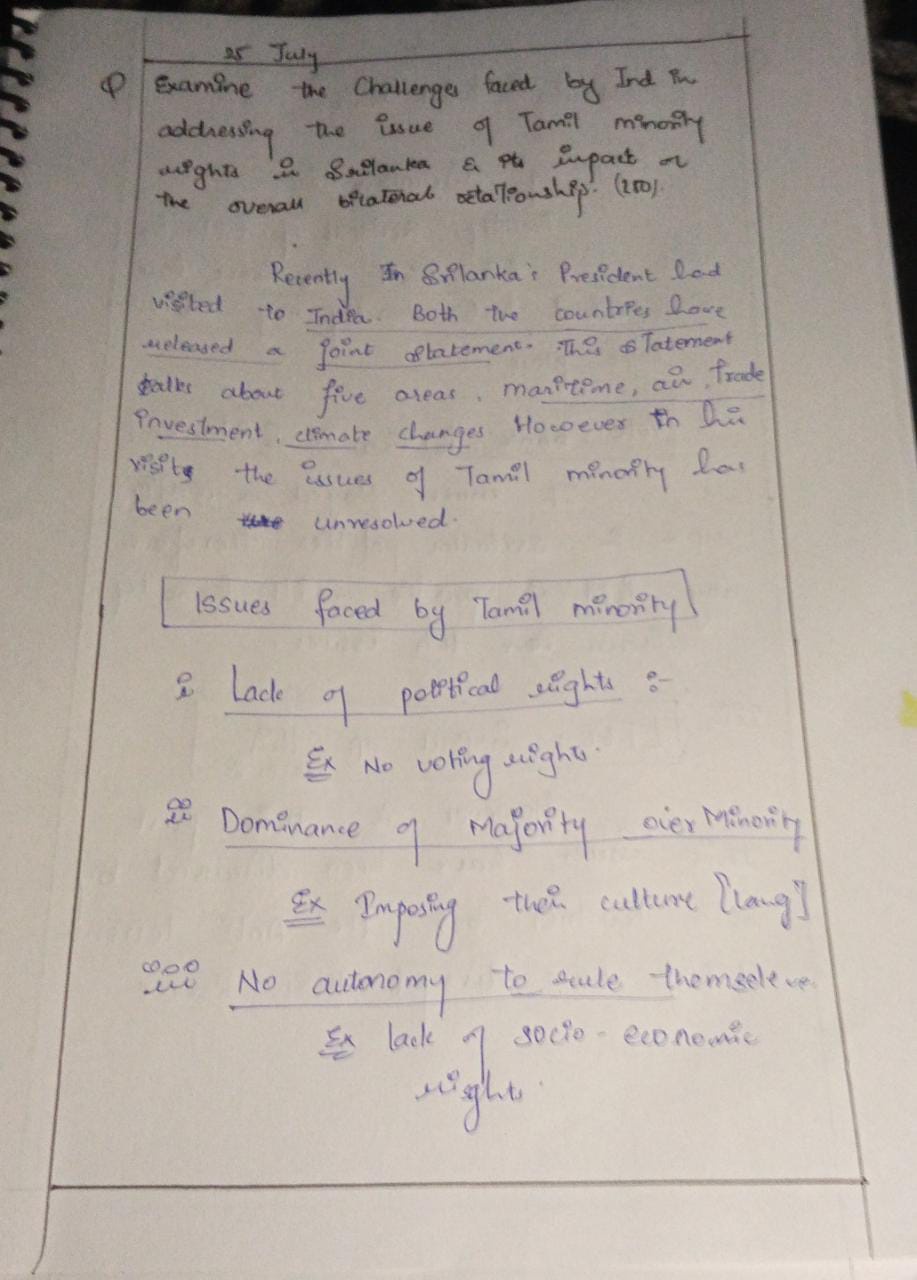 25 July
Q Examine the Challenges faced by Ind in
addressing the issue of Tamil minority
rights in Srilanka & its impact on
the overall bilateral relationship. (250).
Recently In Srilanka's President had
visited to India. Both the countries have
released a joint statement. This statement
talks about five areas, maritime, air, trade
investment, climate changes However in his
visit the issues of Tamil minority has
been unresolved.
Issues faced by Tamil minority
i Lack of political rights :-
Ex No voting rights.
ii Dominance of Majority over Minority
Ex Imposing their culture [lang]
iii No autonomy to rule themseleve
Ex lack of socio-economic
rights.